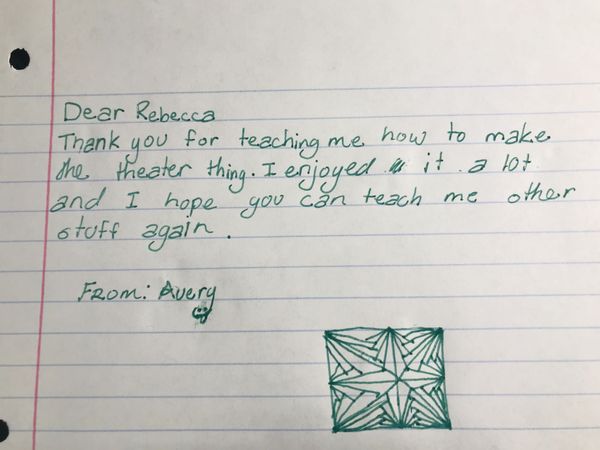 Dear Rebecca
Thank you for teaching me how to make
the theater thing. I enjoyed it a lot
and I hope you can teach me other
stuff again.
From: Avery